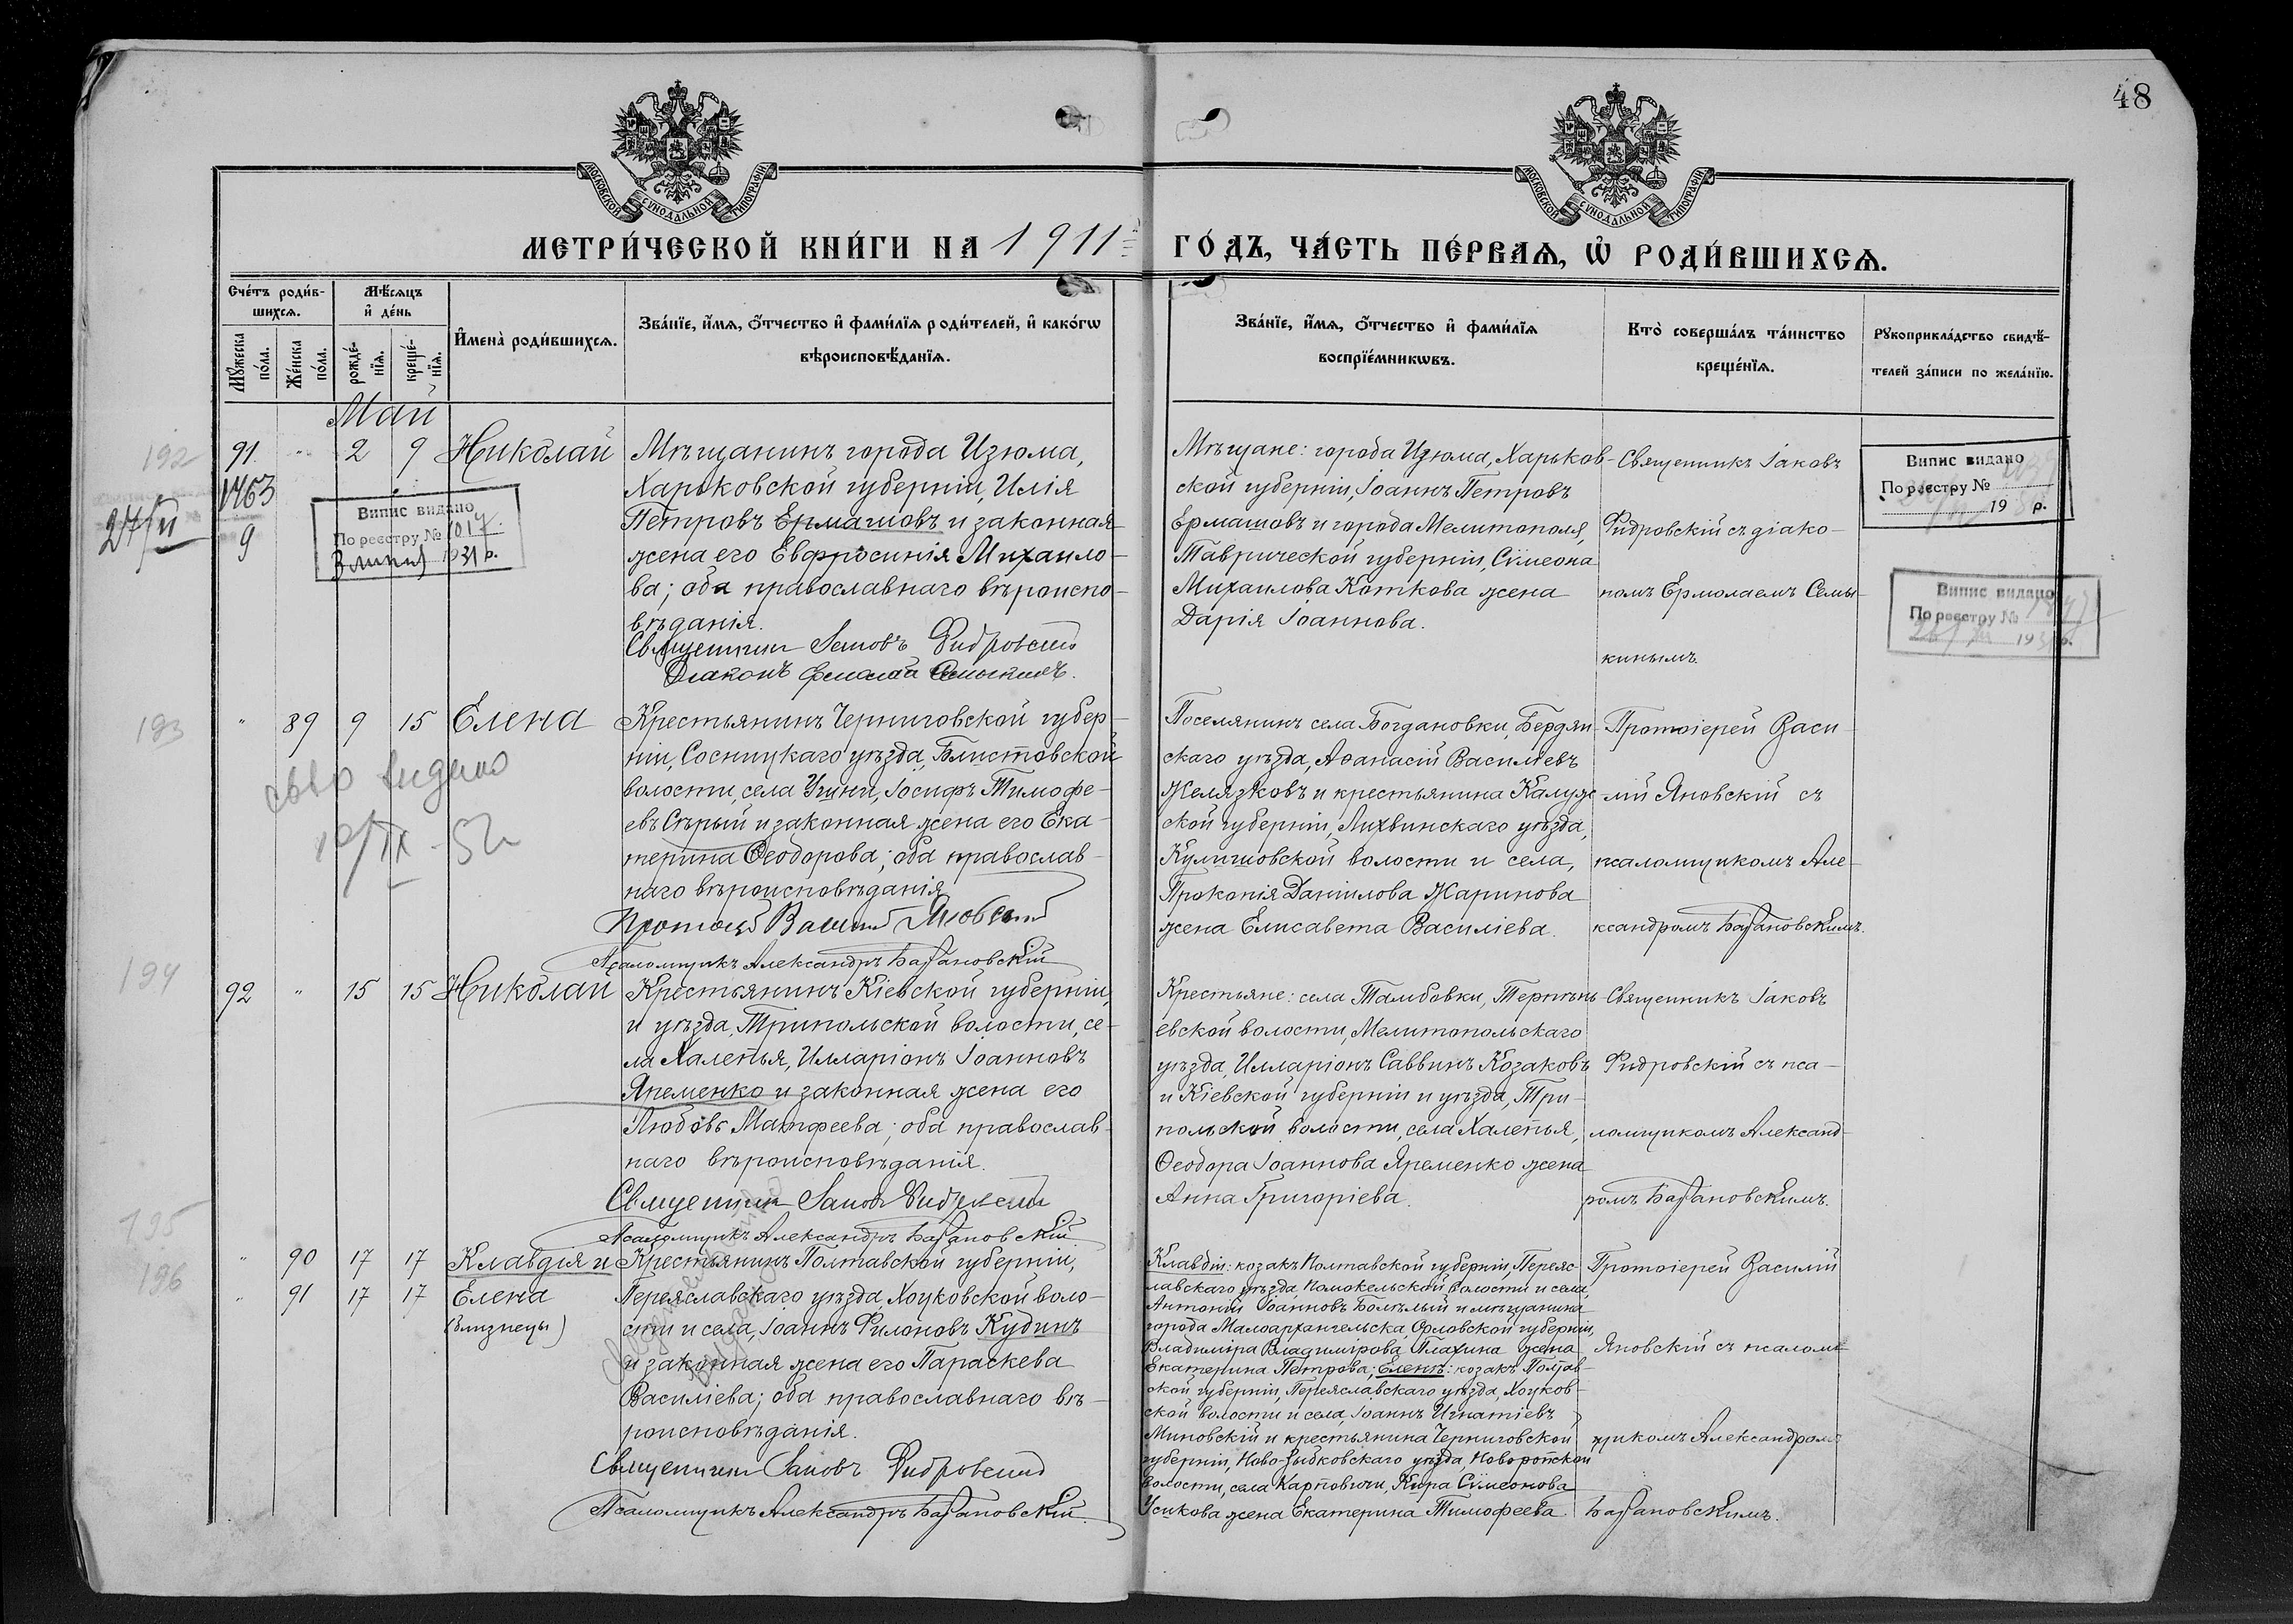 48
МОСКОВСКОЙ СУНОДАЛЬНОЙ ТИПОГРАФІИ
МОСКОВСКОЙ СУНОДАЛЬНОЙ ТИПОГРАФІИ
МЕТРИ́ЧЕСКОЙ КНИ́ГИ НА 1911
ГО́ДЪ, ЧА́СТЬ ПЕ́РВАѦ, Ѡ҆ РОДИ́ВШИХСѦ.
Сче́тъ роди́в-
шихсѧ.
Мꙋ́жеска по́ла.
Же́нска по́ла.
Мѣ́сѧцъ
и҆ де́нь
рожде́-
нїѧ.
креще́-
нїѧ.
И҆мена̀ роди́вшихсѧ.
Зва́нїе, и҆́мѧ, ѻ҆́тчество и҆ фами́лїѧ роди́телей, и҆ како́гѡ
вѣроисповѣ́данїѧ.
Зва́нїе, и҆́мѧ, ѻ҆́тчество и҆ фами́лїѧ
воспрїе́мникѡвъ.
Кто̀ соверша́лъ та́инство
креще́нїѧ.
Рꙋкоприкла́дство свидѣ́-
телей за́писи по жела́нїю.
Май
192
91
"
2
9
Николай
1463
27/II
9
Випис видано
По реєстру № 1017
3 липня 1931 р.
Мѣщанинъ города Изюма,
Харьковской губерніи, Илія
Петровъ Ермашовъ и законная
жена его Евфросинія Михаило-
ва; оба православнаго вѣроиспо-
вѣданія.
Священникъ Іаковъ Фидровскій
Діаконъ Семыкинъ.
Мѣщане: города Изюма, Харьков-
ской губерніи, Іоаннъ Петровъ
Ермашовъ и города Мелитополя,
Таврической губерніи, Сѵмеона
Михаилова Коткова жена
Дарія Іоаннова.
Священникъ Іаковъ
Фидровскій съ діако-
номъ Ермолаемъ Семы-
кинымъ.
Випис видано
По реєстру №
19 р.
Випис видано
По реєстру №
193 р.
193
"
89
9
15
Елена
св-во видано
52
Крестьянинъ Черниговской губер-
ніи, Сосницкаго уѣзда, Блистовской
волости, села Ушни, Іосифъ Тимофе-
евъ Сѣрый и законная жена его Ека-
терина Ѳеодорова; оба православ-
наго вѣроисповѣданія
Протоіерей Василій Яновскій
Псаломщикъ Александръ Базановскій
Поселянинъ села Богдановки, Бердян-
скаго уѣзда, Аѳанасій Василіевъ
Желязковъ и крестьянина Калуж-
ской губерніи, Лихвинскаго уѣзда,
Кулешовской волости и села,
Прокопія Даніилова Жаринова
жена Елисавета Василіева.
Протоіерей Васи-
лій Яновскій съ
псаломщикомъ Але-
ксандромъ Базановскимъ.
194
92
"
15
15
Николай
Крестьянинъ Кіевской губерніи,
и уѣзда, Трипольской волости, се-
ла Халепья, Илларіонъ Іоанновъ
Яременко и законная жена его
Любовь Матфеева; оба православ-
наго вѣроисповѣданія.
Священникъ Іаковъ Фидровскій
Псаломщикъ Александръ Базановскій
Крестьяне: села Тамбовки, Терпѣнь-
евской волости, Мелитопольскаго
уѣзда, Илларіонъ Саввинъ Козаковъ
и Кіевской губерніи и уѣзда, Три-
польской волости, села Халепья,
Ѳеодора Іоаннова Яременко жена
Анна Григоріева.
Священникъ Іаковъ
Фидровскій съ пса-
ломщикомъ Александ-
ромъ Базановскимъ.
195
196
"
90
17
17
Клавдія и
"
91
17
17
Елена
(близнецы)
Крестьянинъ Полтавской губерніи,
Переяславскаго уѣзда, Хоцковской воло-
сти и села, Іоаннъ Филоновъ Кудинъ
и законная жена его Параскева
Василіева; оба православнаго вѣ-
роисповѣданія.
Священникъ Іаковъ Фидровскій
Псаломщикъ Александръ Базановскій.
Клавдіи: козакъ Полтавской губерніи, Переяс-
лавскаго уѣзда, Помокельской волости и села,
Антоній Іоанновъ и мѣщанина
города Малоархангельска, Орловской губерніи,
Владиміра Владимірова Плахина жена
Екатерина Петрова; Еленѣ: козакъ Полтав-
ской губерніи, Переяславскаго уѣзда, Хоцков-
ской волости и села, Іоаннъ Игнатіевъ
Миновскій и крестьянина Черниговской
губерніи, Ново-Зыбковскаго уѣзда, Новоропской
волости, села Карповичи, Кира Сѵмеонова
Усикова жена Екатерина Тимофеева.
Протоіерей Василій
Яновскій съ псалом-
щикомъ Александромъ
Базановскимъ.